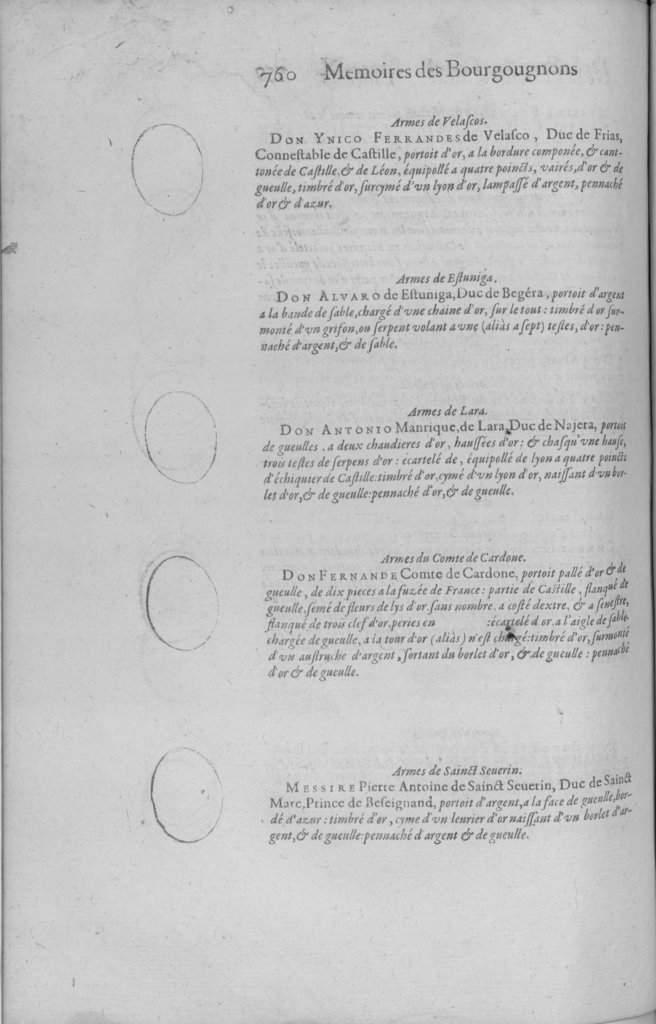 760 Memoires des Bourgougnons
Armes de Velaſcos.
DON YNICO FERRANDES de Velaſco, Duc de Frias,
Conneſtable de Caſtille, portoit d'or, a la bordure componée, & can-
tonée de Caſtille, & de Léon, équipollé a quatre poincts, vairés, d'or & de
gueulle, timbré d'or, ſurcymé d'vn lyon d'or, lampaſſé d'argent, pennaché
d'or & d'azur.
Armes de Eſtuniga.
DON ALVARO de Eſtuniga, Duc de Begéra, portoit d'argent
a la bande de ſable, chargé d'vne chaine d'or, ſur le tout : timbré d'or ſur-
monté d'vn grifon, ou ſerpent volant a vne (aliàs a ſept) teſtes, d'or : pen-
naché d'argent, & de ſable.
Armes de Lara.
DON ANTONIO Manrique, de Lara, Duc de Najera, portoit
de gueulles, a deux chaudieres d'or, hauſſées d'or ; & chaſqu'vne hauſe,
trois teſtes de ſerpens d'or : écartelé de, équipollé de lyon a quatre poincts
d'échiquier de Caſtille : timbré d'or, cymé d'vn lyon d'or, naiſſant d'vn bor-
let d'or, & de gueulle : pennaché d'or, & de gueulle.
Armes du Comte de Cardone.
DON FERNANDE Comte de Cardone, portoit pallé d'or & de
gueulle, de dix pieces a la fuzée de France : partie de Caſtille, flanqué de
gueulle, ſemé de fleurs de lys d'or ſans nombre, a coſté dextre, & a ſeneſtre,
flanqué de trois clef d'or, peries en : écartelé d'or a l'aigle de ſable,
chargée de gueulle, a la tour d'or (aliàs) n'eſt chargé : timbré d'or, ſurmonté
d'vn auſtruche d'argent, ſortant du borlet d'or, & de gueulle : pennaché
d'or & de gueulle.
Armes de Sainct Seuerin.
MESSIRE Pierre Antoine de Sainct Seuerin, Duc de Sainct
Marc, Prince de Beſeignand, portoit d'argent, a la face de gueulle, bor-
dé d'azur : timbré d'or, cyme d'vn leurier d'or naiſſant d'vn borlet d'ar-
gent, & de gueulle : pennaché d'argent & de gueulle.